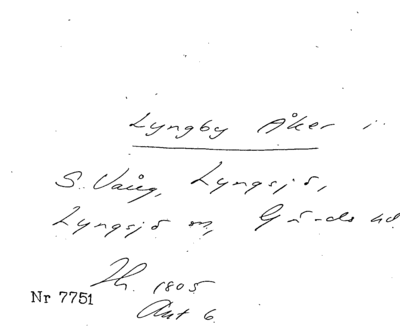 Lyngby Åker i
S. Vång, Lyngsjö,
Lyngsjö sn, Gärds hd
Th. 1805
Nr 7751
Akt 6